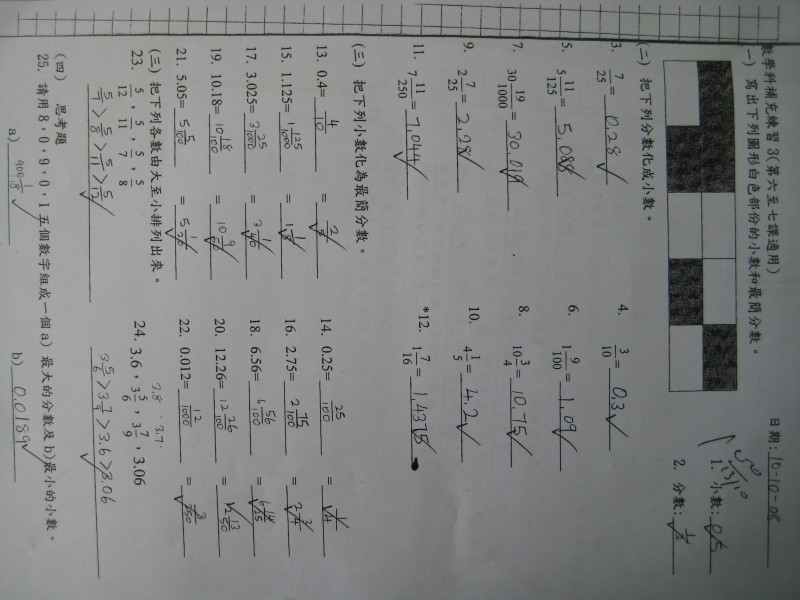 數學科補充練習 3(第六至七課適用)
日期: 10-10-08
(一) 寫出下列圖形白色部份的小數和最簡分數。
1. 小數: 0.5
2. 分數: 1/2
(二) 把下列分數化成小數。
3. 7/25 = 0.28
4. 3/10 = 0.3
5. 5 11/125 = 5.088
6. 1 9/100 = 1.09
7. 30 19/1000 = 30.019
8. 10 3/4 = 10.75
9. 2 7/25 = 2.28
10. 4 1/5 = 4.2
11. 7 11/250 = 7.044
*12. 1 7/16 = 1.4375
(三) 把下列小數化為最簡分數。
13. 0.4= 4/10 = 2/5
14. 0.25= 25/100 = 1/4
15. 1.125= 1 125/1000 = 1 1/8
16. 2.75= 2 75/100 = 2 3/4
17. 3.025= 3 25/1000 = 3 1/40
18. 6.56= 6 56/100 = 6 14/25
19. 10.18= 10 18/100 = 10 9/50
20. 12.26= 12 26/100 = 12 13/50
21. 5.05= 5 5/100 = 5 1/20
22. 0.012= 12/1000 = 3/250
(三) 把下列各數由大至小排列出來。
23. 5/12 , 5/11 , 5/7 , 5/8
5/7 > 5/8 > 5/11 > 5/12
3.8 3.7
24. 3.6 , 3 5/6 , 3 7/9 , 3.06
3 5/6 > 3 7/9 > 3.6 > 3.06
(四) 思考題
25. 請用 8,0,9,0,1 五個數字組成一個a) 最大的分數及 b)最小的小數。
a) 900 1/8
b) 0.0189